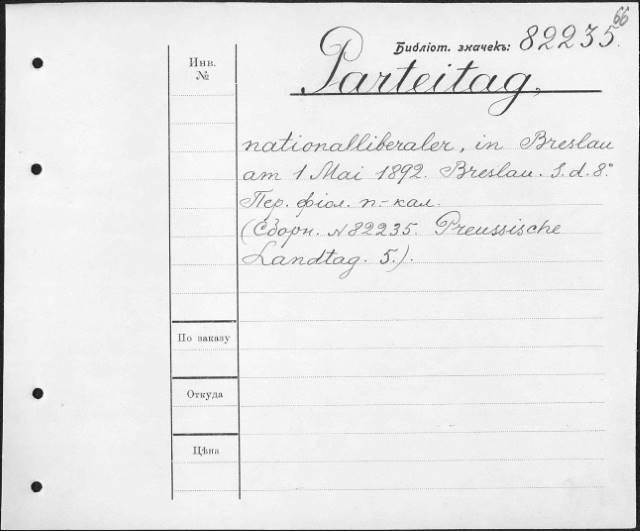 66
Библіот. значекъ: 82235.
Инв.
№
Parteitag,
nationalliberaler, in Breslau
am 1 Mai 1892. Breslau. S. d. 8.°
Пер. фіол. п.-кал.
(Сборн. № 82235. Preussische
Landtag. 5.).
По заказу
Откуда
Цѣна